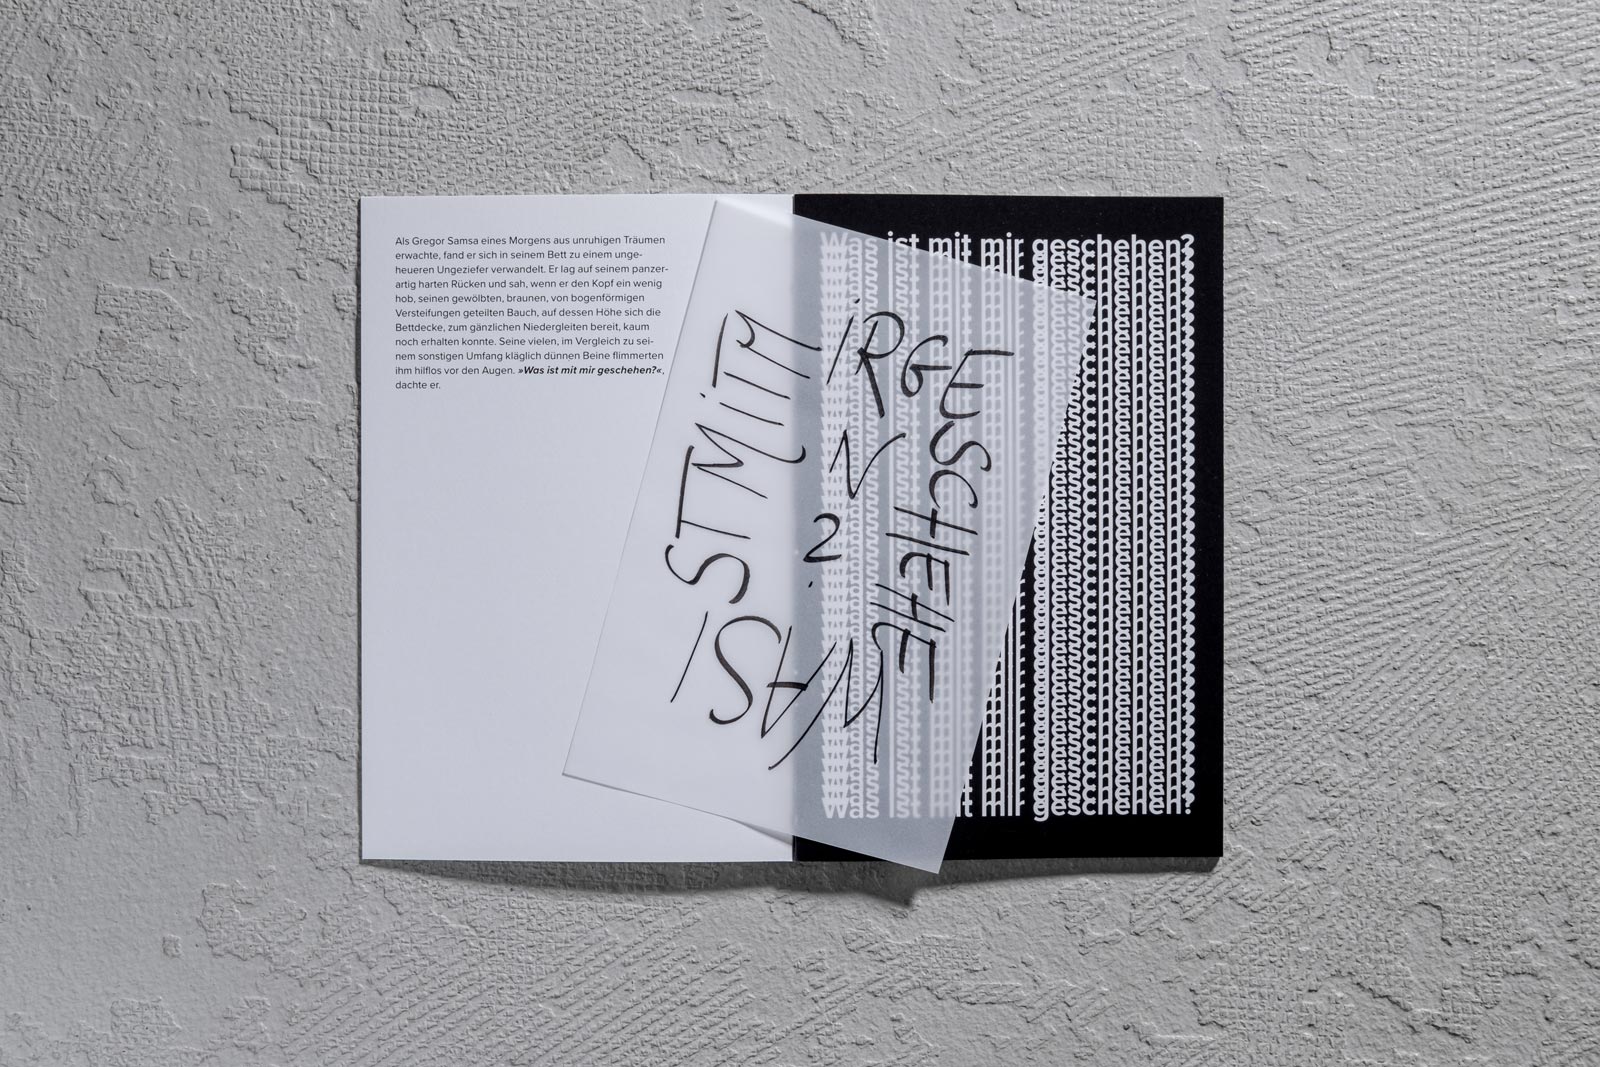 Als Gregor Samsa eines Morgens aus unruhigen Träumen
erwachte, fand er sich in seinem Bett zu einem unge-
heueren Ungeziefer verwandelt. Er lag auf seinem panzer-
artig harten Rücken und sah, wenn er den Kopf ein wenig
hob, seinen gewölbten, braunen, von bogenförmigen
Versteifungen geteilten Bauch, auf dessen Höhe sich die
Bettdecke, zum gänzlichen Niedergleiten bereit, kaum
noch erhalten konnte. Seine vielen, im Vergleich zu sei-
nem sonstigen Umfang kläglich dünnen Beine flimmerten
ihm hilflos vor den Augen. »Was ist mit mir geschehen?«,
dachte er.
WAS iST MiT MiR GESCHEHEN?
Was ist mit mir geschehen?
Was ist mit mir geschehen?